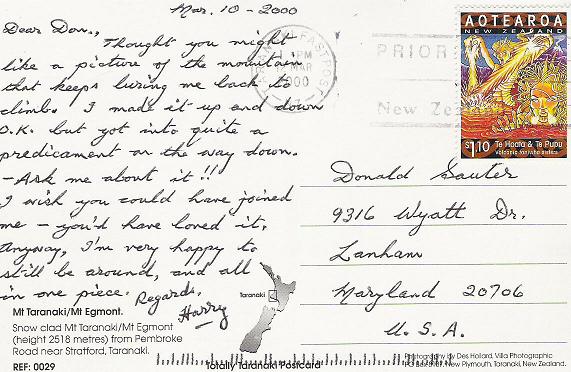 Mar. 10 - 2000
Dear Don.,
Thought you might
like a picture of the mountain
that keeps luring me back to
climb. I made it up and down
O.K. but got into quite a
predicament on the way down.
- Ask me about it!!
I wish you could have joined
me - you'd have loved it.
Anyway, I'm very happy to
still be around, and all
in one piece. Regards,
Harry
Mt Taranaki/Mt Egmont.
Snow clad Mt Taranaki/Mt Egmont
(height 2518 metres) from Pembroke
Road near Stratford, Taranaki.
REF: 0029
Taranaki
Totally Taranaki Postcard
FAST POST
PM
MAR
2000
New Ze
AOTEAROA
NEW ZEALAND
$1.10 Te Hoata & Te Pupu
volcanic taniwha sisters
Donald Sauter
9316 Wyatt Dr.
Lanham
Maryland 20706
U.S.A.
Photography by Des Hollard, Villa Photographic
New Plymouth, Taranaki, New Zealand.